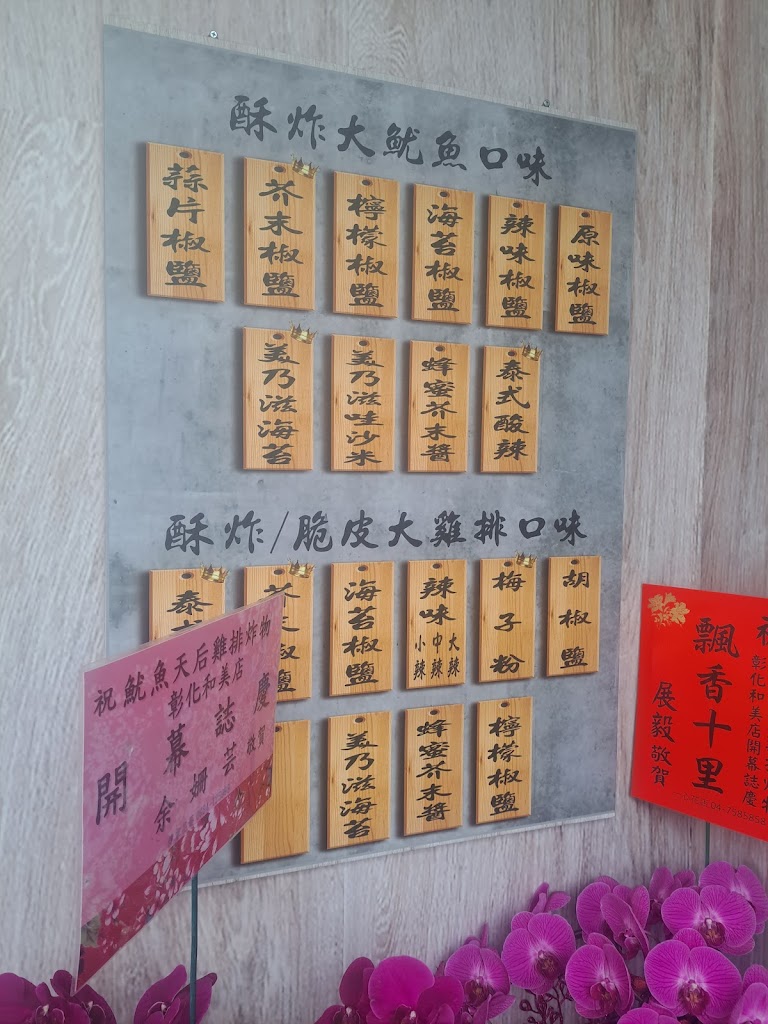 酥炸大魷魚口味
原味椒鹽
辣味椒鹽
海苔椒鹽
檸檬椒鹽
芥末椒鹽
蒜片椒鹽
泰式酸辣
蜂蜜芥末醬
美乃滋哇沙米
美乃滋海苔
酥炸/脆皮大雞排口味
胡椒鹽
梅子粉
辣味
大辣
中辣
小辣
海苔椒鹽
芥末椒鹽
泰
檸檬椒鹽
蜂蜜芥末醬
美乃滋海苔
祝魷魚天后雞排炸物
彰化和美店
開幕誌慶
余姍芸
敬賀
彰化和美店開幕誌慶
飄香十里
展毅敬賀